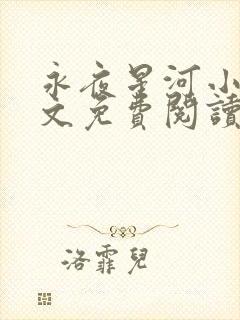 永夜星河小
文免費閱讀
洛霏兒